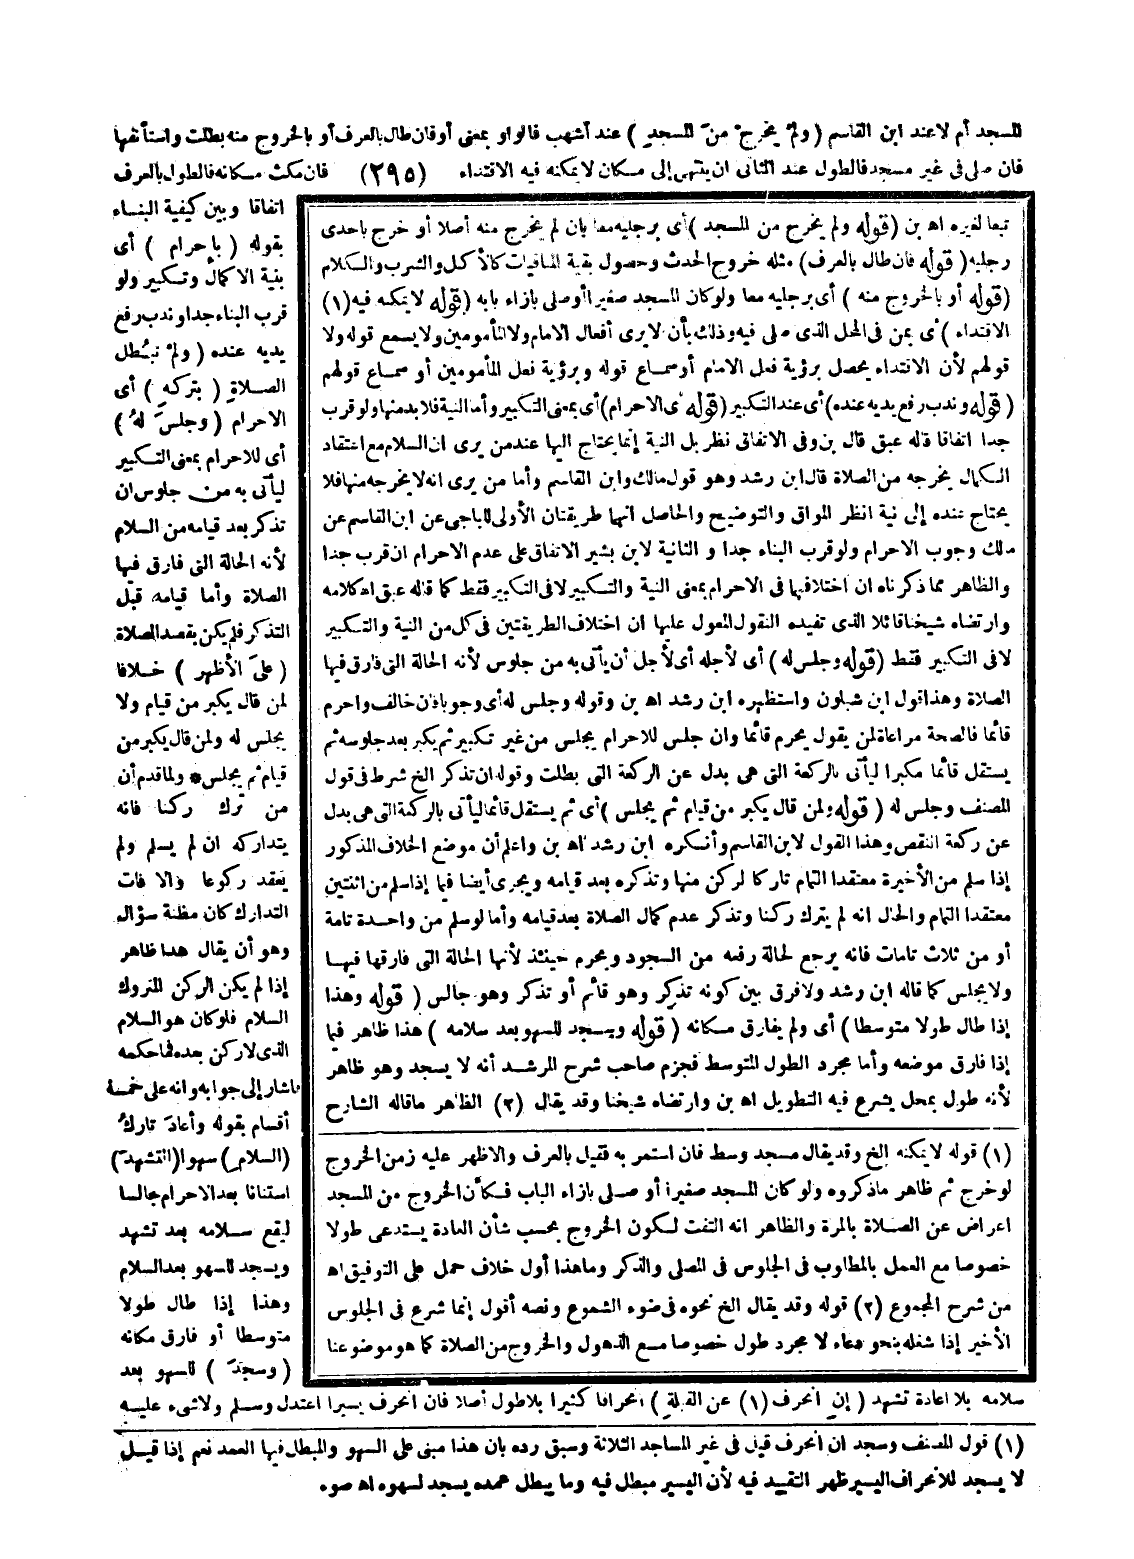 للمسجد أم لا عند ابن القاسم ( ولمْ يخرجْ منَ المسجدِ ) عند أشهب فالواو بمعنى أو فان طال بالعرف أو بالخروج منه بطلت واستأنفها
فان صلى فى غير مسجد فالطول عند الثانى ان ينتهى إلى مكان لا يمكنه فيه الاقتداء (٢٩٥) فان مكث مكانه فالطول بالعرف
اتفاقا وبين كيفية البناء
بقوله ( بإحرام ) أى
بنية الاكمال وتكبير ولو
قرب البناء جدا وندب رفع
يديه عنده ( ولمْ تبْطل
الصلاة ( بتركهِ ) أى
الاحرام ( وجلسَ لهُ )
أى للاحرام بمعنى التكبير
ليأتى به من جلوس ان
تذكر بعد قيامه من السلام
لأنه الحالة التى فارق فيها
الصلاة وأما قيامه قبل
التذكر فلم يكن بقصد الصلاة
( علىَ الأظهرِ ) خلافا
لمن قال يكبر من قيام ولا
يجلس له ولمن قال يكبر من
قيام ثم يجلس* ولما قدم أن
من ترك ركنا فانه
يتداركه ان لم يسلم ولم
يعقد ركوعا والا فات
التدارك كان مظنة سؤال
وهو أن يقال هذا ظاهر
إذا لم يكن الركن المتروك
السلام فلو كان هو السلام
الذى لا ركن بعده فما حكمه
فأشار إلى جوابه وانه على خمسة
أقسام بقوله وأعادَ تاركُ
(السلامِ) سهوا (التشهدَ)
استنانا بعد الاحرام جالسا
ليقع سلامه بعد تشهد
ويسجد للسهو بعد السلام
وهذا إذا طال طولا
متوسطا أو فارق مكانه
( وسجدَ ) للسهو بعد
تبعا لغيره اه بن (قوله ولم يخرج من المسجد ) أى برجليه معا بان لم يخرج منه أصلا أو خرج باحدى
رجليه ( قوله فان طال بالعرف) مثله خروج الحدث وحصول بقية المنافيات كالأكل والشرب والكلام
(قوله أو بالخروج منه ) أى برجليه معا ولو كان المسجد صغيرا أو صلى بازاء بابه (قوله لا يمكنه فيه(١)
الاقتداء ) أى بمن فى المحل الذى صلى فيه وذلك بأن لا يرى أفعال الامام ولا المأمومين ولا يسمع قوله ولا
قولهم لأن الاقتداء يحصل برؤية فعل الامام أو سماع قوله وبرؤية فعل المأمومين أو سماع قولهم
( قوله وندب رفع يديه عنده) أى عند التكبير (قوله أى الاحرام) أى بمعنى التكبير وأما النية فلا بد منها ولو قرب
جدا اتفاقا قاله عبق قال بن وفى الاتفاق نظر بل النية إنما يحتاج اليها عند من يرى ان السلام مع اعتقاد
الكمال يخرجه من الصلاة قال ابن رشد وهو قول مالك وابن القاسم وأما من يرى انه لا يخرجه منها فلا
يحتاج عنده إلى نية انظر المواق والتوضيح والحاصل انهما طريقتان الأولى للباجى عن ابن القاسم عن
مالك وجوب الاحرام ولو قرب البناء جدا و الثانية لابن بشير الاتفاق على عدم الاحرام ان قرب جدا
والظاهر مما ذكرناه ان اختلافهما فى الاحرام بمعنى النية والتكبير لا فى التكبير فقط كما قاله عبق اه كلامه
وارتضاه شيخنا قائلا الذى تفيده النقول المعول عليها ان اختلاف الطريقتين فى كل من النية والتكبير
لا فى التكبير فقط (قوله وجلس له) أى لأجله أى لأجل أن يأتى به من جلوس لأنه الحالة التى فارق فيها
الصلاة وهذا قول ابن شبلون واستظهره ابن رشد اه بن وقوله وجلس له أى وجوبا فان خالف واحرم
قائما فالصحة مراعاة لمن يقول يحرم قائما وان جلس للاحرام يجلس من غير تكبير ثم يكبر بعد جلوسه ثم
يستقل قائما مكبرا ليأتى بالركعة التى هى بدل عن الركعة التى بطلت وقوله ان تذكر الخ شرط فى قول
المصنف وجلس له ( قوله ولمن قال يكبر من قيام ثم يجلس ) أى ثم يستقل قائما ليأتى بالركعة التى هى بدل
عن ركعة النقص وهذا القول لابن القاسم وأنكره ابن رشد اه بن واعلم أن موضع الخلاف المذكور
إذا سلم من الأخيرة معتقدا التمام تاركا لركن منها وتذكره بعد قيامه ويجرى أيضا فيما إذا سلم من اثنتين
معتقدا التمام والحال انه لم يترك ركنا وتذكر عدم كمال الصلاة بعد قيامه وأما لو سلم من واحدة تامة
أو من ثلاث تامات فانه يرجع لحالة رفعه من السجود ويحرم حينئذ لأنها الحالة التى فارقها فيها
ولا يجلس كما قاله ابن رشد ولا فرق بين كونه تذكر وهو قائم أو تذكر وهو جالس ( قوله وهذا
إذا طال طولا متوسطا ) أى ولم يفارق مكانه ( قوله ويسجد للسهو بعد سلامه ) هذا ظاهر فيما
إذا فارق موضعه وأما مجرد الطول المتوسط فجزم صاحب شرح المرشد أنه لا يسجد وهو ظاهر
لأنه طول بمحل يشرع فيه التطويل اه بن وارتضاه شيخنا وقد يقال (٢) الظاهر ماقاله الشارح
(١) قوله لا يمكنه الخ وقد يقال مسجد وسط فان استمر به فقيل بالعرف والاظهر عليه زمن الخروج
لو خرج ثم ظاهر ماذكروه ولو كان المسجد صغيرا أو صلى بازاء الباب فكأن الخروج من المسجد
اعراض عن الصلاة بالمرة والظاهر انه التفت لكون الخروج بحسب شأن العادة يستدعى طولا
خصوصا مع العمل بالمطلوب فى الجلوس فى المصلى والذكر وماهذا أول خلاف حمل على التوفيق اه
من شرح المجموع (٢) قوله وقد يقال الخ نحوه فى ضوء الشموع ونصه أقول إنما شرع فى الجلوس
الأخير إذا شغله بنحو دعاء لا مجرد طول خصوصا مع الذهول والخروج من الصلاة كما هو موضوعنا
سلامه بلا اعادة تشهد ( إنِ انحرف (١) عن القبلةِ ) انحرافا كثيرا بلا طول أصلا فان انحرف يسيرا اعتدل وسلم ولا شىء عليه
(١) قول المصنف وسجد ان انحرف قيل فى غير المساجد الثلاثة وسبق رده بان هذا مبنى على السهو والمبطل فيها العمد نعم إذا قيل
لا يسجد للانحراف اليسير ظهر التقييد فيه لأن اليسير مبطل فيه وما يبطل عمده يسجد لسهوه اه ضوء